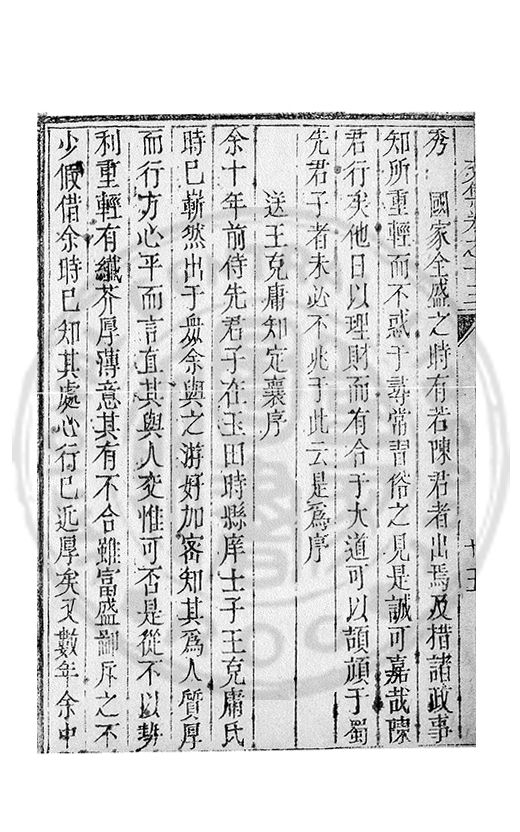 秀　國家全盛之時有若陳君者出焉及措諸政事
知所重輕而不惑于尋常習俗之見是誠可嘉哉陳
君行矣他日以理財而有合于大道可以頡頏于蜀
先君子者未必不兆于此云是爲序
送王克庸知定襄序
余十年前侍先君子在玉田時縣庠士子王克庸氏
時已嶄然出于衆余與之游好加密知其爲人質厚
而行方心平而言直其與人交惟可否是從不以勢
利重輕有纖芥厚薄意其有不合雖富盛鄙斥之不
少假借余時已知其處心行已近厚矣又數年余中